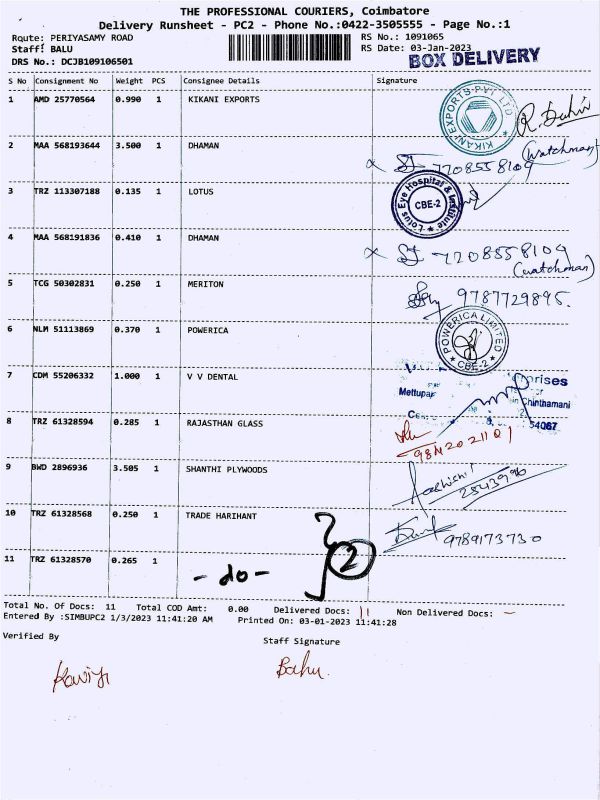 THE PROFESSIONAL COURIERS, Coimbatore
Delivery Runsheet - PC2 - Phone No.:0422-3505555 - Page No.:1
Route: PERIYASAMY ROAD
RS No.: 1091065
Staff: BALU
RS Date: 03-Jan-2023
DRS No.: DCJB109106501
BOX DELIVERY
S No Consignment No Weight PCS Consignee Details Signature
1 AMD 25770564 0.990 1 KIKANI EXPORTS
KIKANI EXPORTS PVT LTD
(Watchman)
2 MAA 568193644 3.500 1 DHAMAN
7708558109
3 TRZ 113307188 0.135 1 LOTUS
Lotus Eye Hospital & Institute
CBE-2
4 MAA 568191836 0.410 1 DHAMAN
7708558109
(watchman)
5 TCG 50302831 0.250 1 MERITON
9787729895.
6 NLM 51113869 0.370 1 POWERICA
POWERICA LIMITED
CBE-2
7 CDM 55206332 1.000 1 V V DENTAL
Mettupa
Chinthamani
8 TRZ 61328594 0.285 1 RAJASTHAN GLASS
9842021101
9 BWD 2896936 3.505 1 SHANTHI PLYWOODS
10 TRZ 61328568 0.250 1 TRADE HARIHANT
9789173730
2
11 TRZ 61328570 0.265 1
- do -
Total No. Of Docs: 11 Total COD Amt: 0.00 Delivered Docs: 11 Non Delivered Docs: -
Entered By :SIMBUPC2 1/3/2023 11:41:20 AM Printed On: 03-01-2023 11:41:28
Verified By Staff Signature